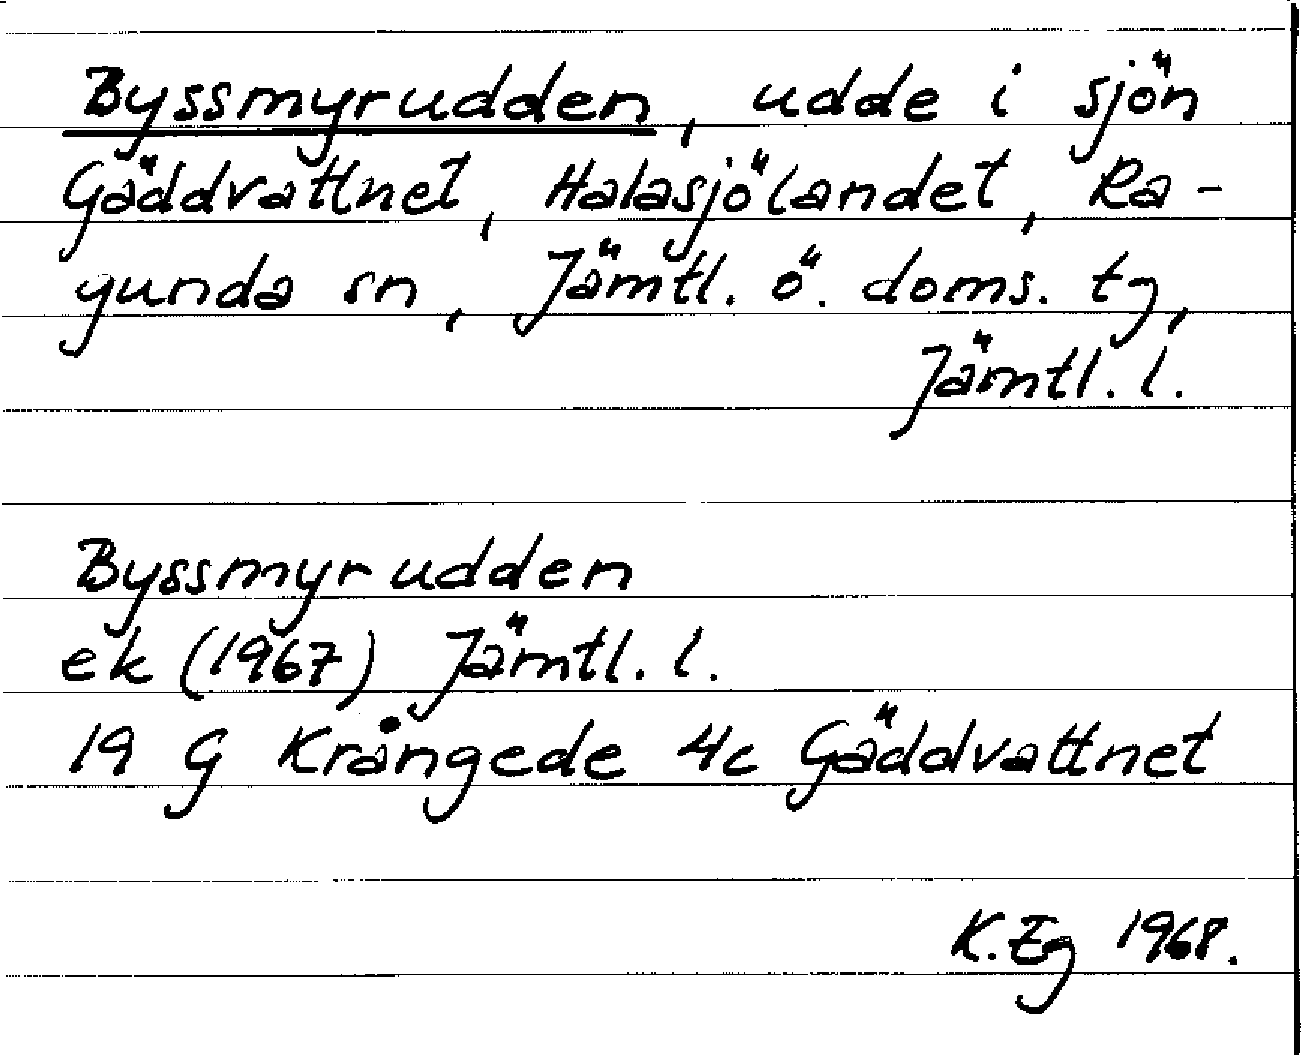 Byssmyrudden, udde i sjön
Gäddvattnet, Halasjölandet, Ra-
gunda sn, Jämtl. ö. doms. tg,
Jämtl. l.
Byssmyrudden
ek (1967) Jämtl. l.
19 G Krångede 4c Gäddvattnet
K. Eg 1968.